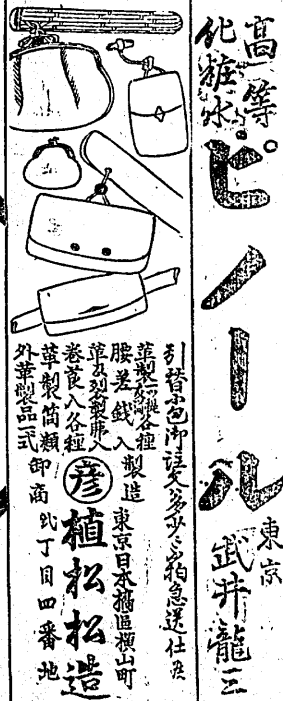 高等
化粧水
ピノール
東京
武井龍三
引替小包御註文多少ニ不拘急送仕候
各種
腰差銭入
巻莨入各種
革製筒類
外革製品一式
製造
卸商
彦
東京日本橋區横山町
弐丁目四番地
植松松造